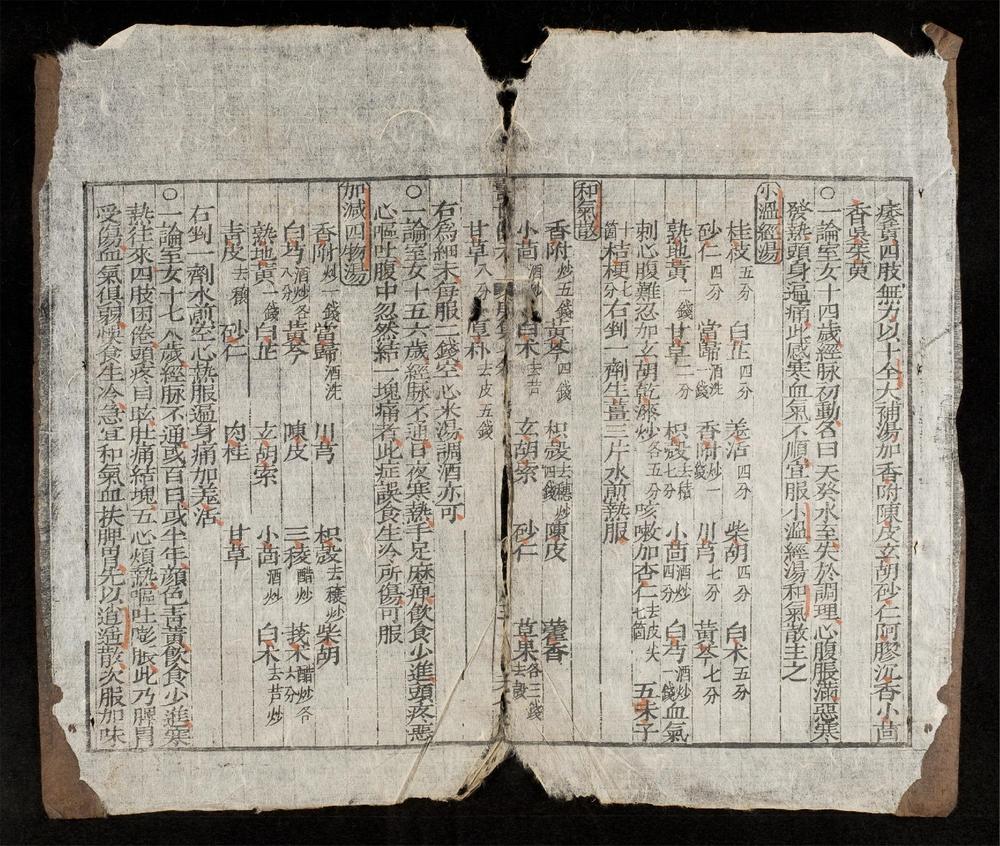 痿黃四肢無力以十全大補湯加香附陳皮玄胡砂仁阿膠沉香小茴
香吳茱萸
○一論室女十四歲經脉初動名曰天癸水至失於調理心腹脹滿惡寒
發熱頭身遍痛此感寒血氣不順宜服小溫經湯和氣散主之
小溫經湯
桂枝五分 白芷四分 羗活四分 柴胡四分 白术五分
砂仁四分 當歸酒洗一錢 香附炒一錢 川芎七分 黃芩七分
熟地黃一錢 甘草二分 枳殼去穰七分 小茴酒炒四分 白芍酒炒一錢 血氣
刺心腹難忍加玄胡乾漆炒各五分 咳嗽加杏仁去皮尖七箇 五味子
十七箇 桔梗七分 右剉一劑生薑三片水煎熱服
和氣散
香附炒五錢 黃芩四錢 枳殼去穗四錢 陳皮 藿香
小茴酒炒 白术去芦 玄胡索 砂仁 草果各三錢去殼
甘草八分 厚朴去皮五錢
右為細末每服二錢空心米湯調酒亦可
○一論室女十五六歲經脉不通日夜寒熱手足麻痺飲食少進頭疼惡
心嘔吐腹中忽然結一塊痛者此症誤食生冷所傷可服
加減四物湯
香附炒一錢 當歸酒洗 川芎 枳殼去穰炒 柴胡
白芍酒炒各八分 黃芩 陳皮 三稜醋炒 莪朮醋炒各六分
熟地黃一錢 白芷 玄胡索 小茴酒炒 白术去芦炒
青皮去穰 砂仁 肉桂 甘草
右剉一劑水煎空心熱服遍身痛加羗活
○一論室女十七八歲經脉不通或百日或半年顏色青黃飲食少進寒
熱往來四肢困倦頭疼目眩肚痛結塊五心煩熱嘔吐膨脹此乃脾胃
受傷血氣俱弱悞食生冷急宜和氣血扶脾胃先以逍遙散次服加味